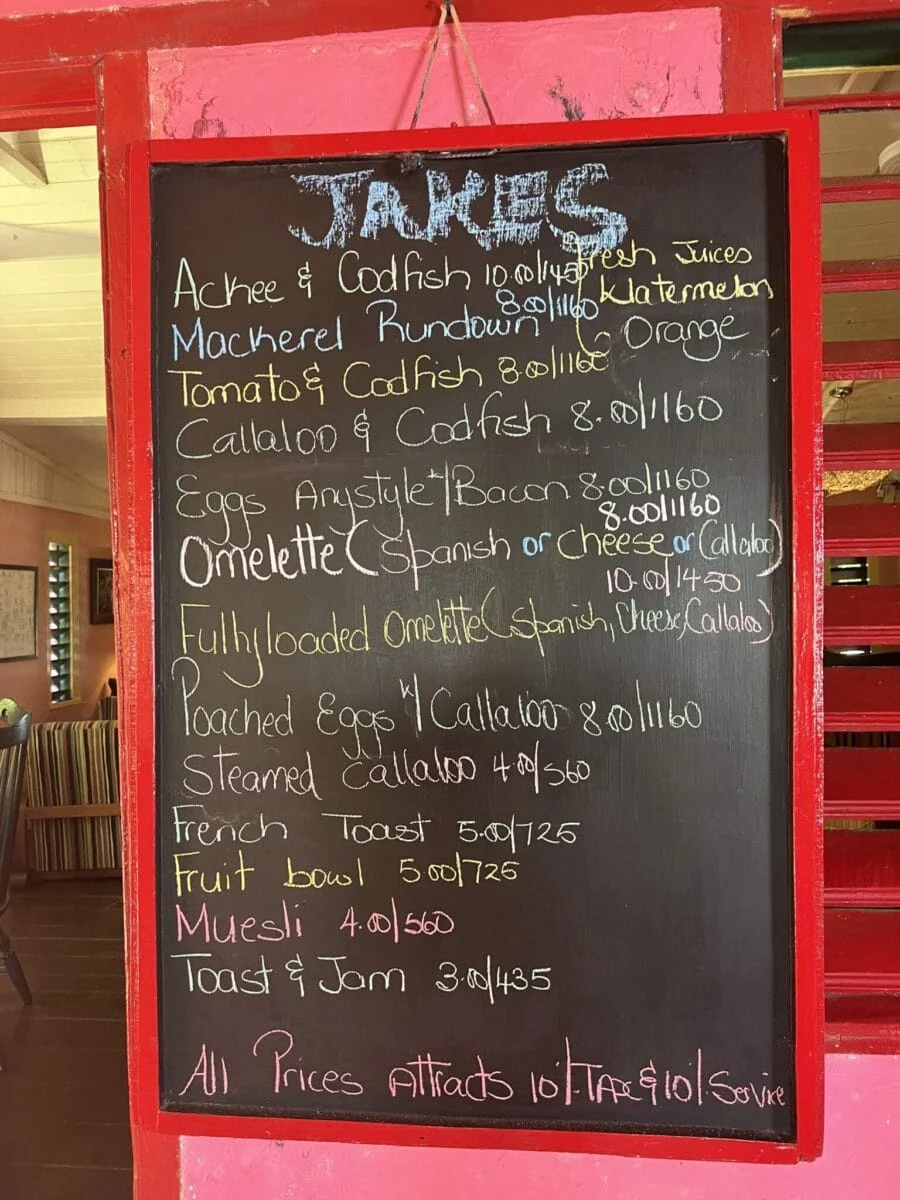 JAKES
Ackee & Codfish 10.00/1450
Fresh Juices
Watermelon
Orange
Mackerel Rundown 8.00/1160
Tomato & Codfish 8.00/1160
Callaloo & Codfish 8.00/1160
Eggs Anystyle w/Bacon 8.00/1160
8.00/1160
Omelette (Spanish or cheese or Callaloo)
10.00/1450
Fullyloaded Omelette (Spanish, Cheese, Callaloo)
Poached Eggs w/ Callaloo 8.00/1160
Steamed Callaloo 4.00/560
French Toast 5.00/725
Fruit bowl 5.00/725
Muesli 4.00/560
Toast & Jam 3.00/435
All Prices Attracts 10% Tax & 10% Service